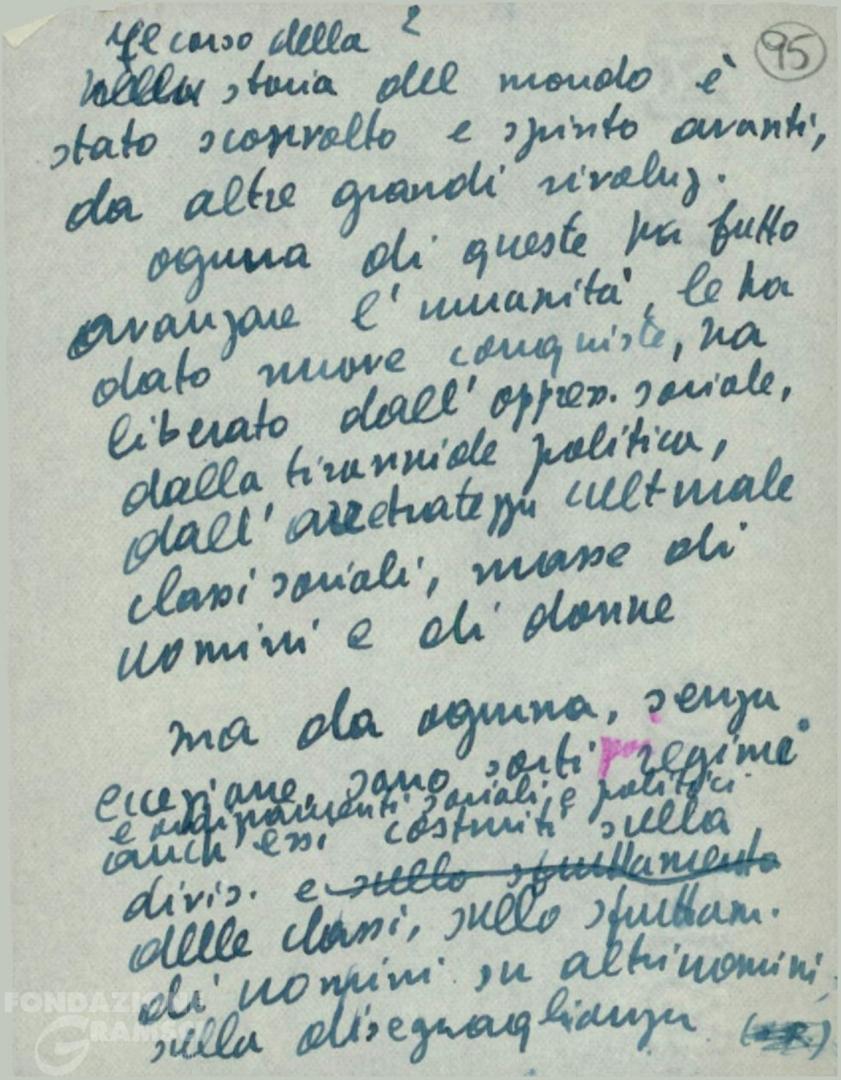 2
95
Il corso della
Nella storia del mondo è
stato sconvolto e spinto avanti,
da altre grandi rivoluz.
ognuna di queste ha fatto
avanzare l'umanità, le ha
dato nuove conquiste, ha
liberato dall'oppress. sociale,
dalla tirannide politica,
dall'arretratezza culturale
classi sociali, masse di
uomini e di donne
ma da ognuna, senza
eccezione, sono sorti poi regimi
e ordinamenti sociali e politici
anch'essi costruiti sulla
divis. e sullo sfruttamento
delle classi, sullo sfruttam.
di uomini su altri uomini,
sulla diseguaglianza
FONDAZIONE
GRAMSCI